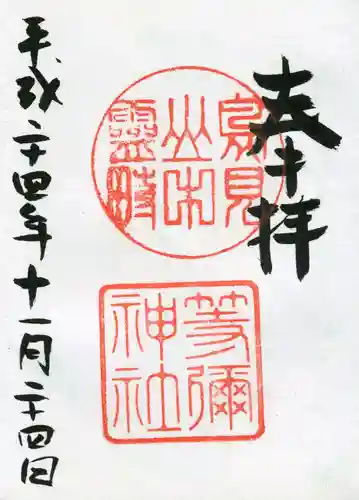 奉拝
鳥見
山中
霊畤
等彌
神社
平成二十四年十一月二十四日